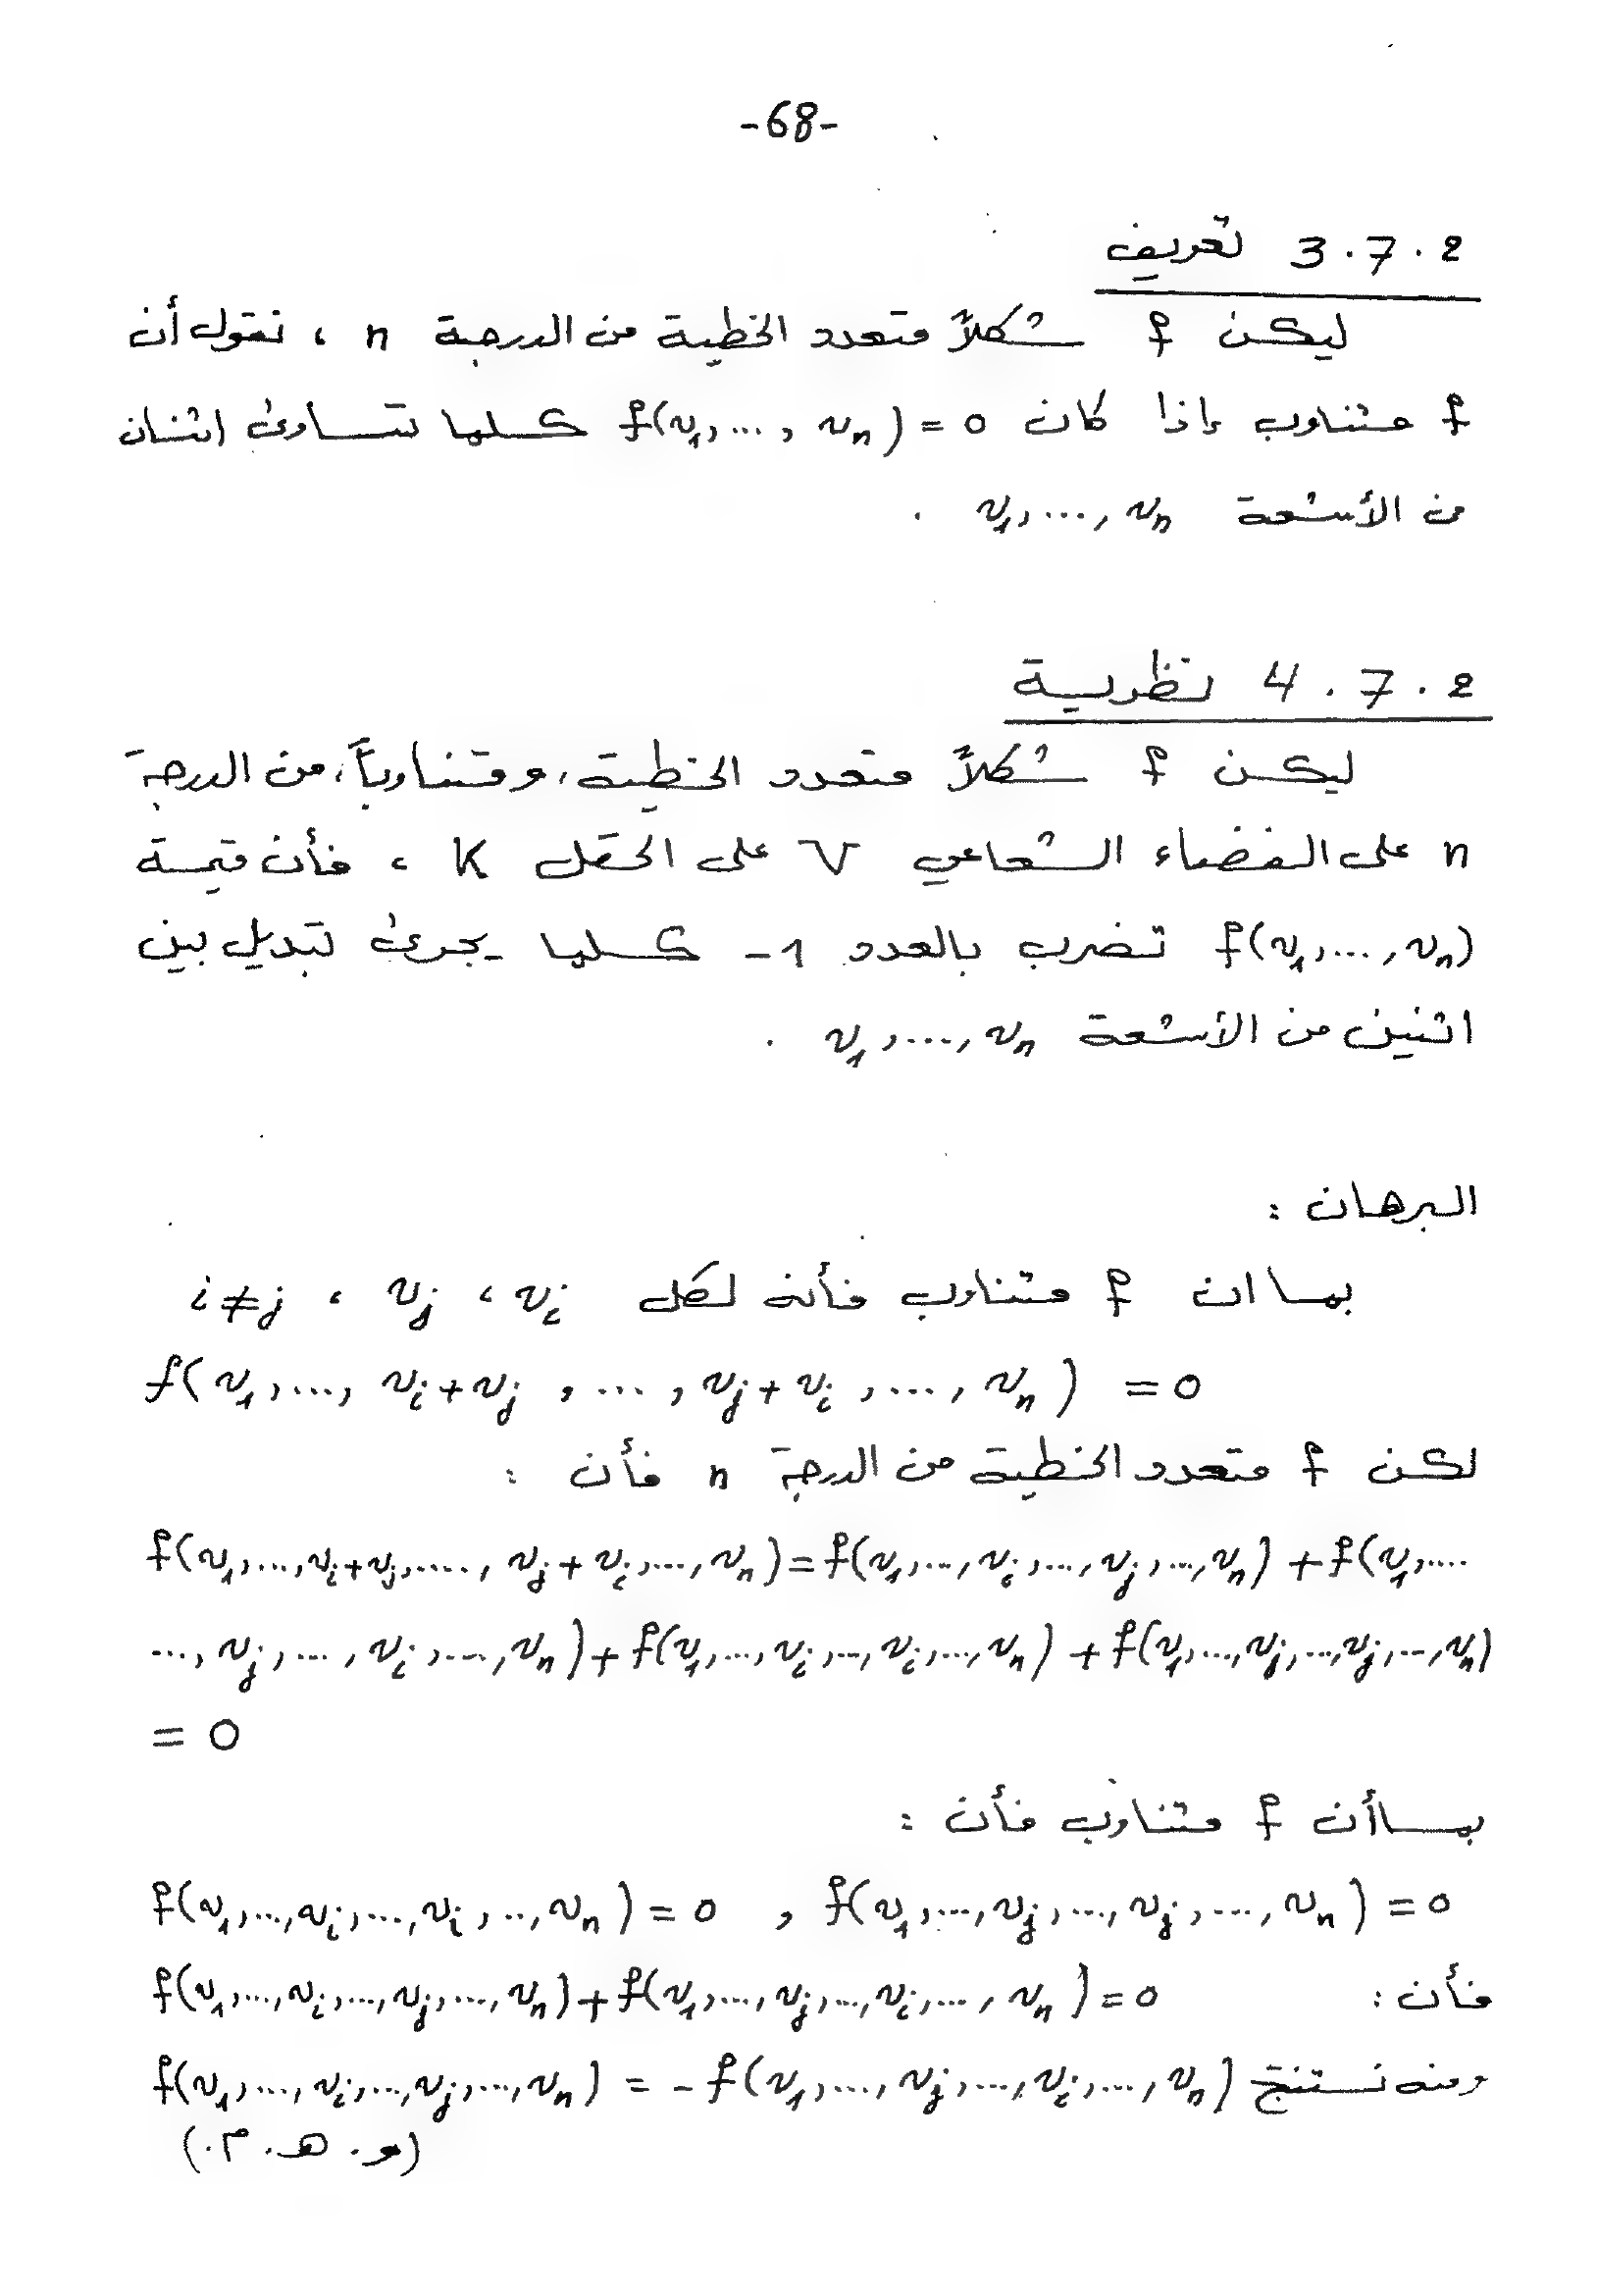 -68-
3.7.2 تعريف
ليكن f شكلاً متعدد الخطية من الدرجة n ، نقول أن
f متناوب إذا كان f(v₁,...,vₙ) = 0 كلما تساوى اثنان
من الأشعة v₁,...,vₙ .
4.7.2 نظرية
ليكن f شكلاً متعدد الخطية، ومتناوباً، من الدرجة
n على الفضاء الشعاعي V على الحقل K ، فأن قيمة
f(v₁,...,vₙ) تضرب بالعدد -1 كلما يجرى تبديل بين
اثنين من الأشعة v₁,...,vₙ .
البرهان :
بما ان f متناوب فأنه لكل vᵢ ، vⱼ ، i≠j
f(v₁,..., vᵢ+vⱼ ,..., vⱼ+vᵢ ,..., vₙ) = 0
لكن f متعدد الخطية من الدرجة n فأن :
f(v₁,...,vᵢ+vⱼ,....,vⱼ+vᵢ,...,vₙ)=f(v₁,...,vᵢ,...,vⱼ,...,vₙ)+f(v₁,....
...,vⱼ,...,vᵢ,...,vₙ)+f(v₁,...,vᵢ,...,vᵢ,...,vₙ)+f(v₁,...,vⱼ,...,vⱼ,...,vₙ)
= 0
بما أن f متناوب فأن :
f(v₁,...,vᵢ,...,vᵢ,..,vₙ)=0 , f(v₁,...,vⱼ,...,vⱼ,...,vₙ)=0
فأن : f(v₁,...,vᵢ,...,vⱼ,...,vₙ)+f(v₁,...,vⱼ,...,vᵢ,...,vₙ)=0
ومنه نستنتج f(v₁,...,vᵢ,...,vⱼ,...,vₙ) = -f(v₁,...,vⱼ,...,vᵢ,...,vₙ)
(و. هـ. م.)